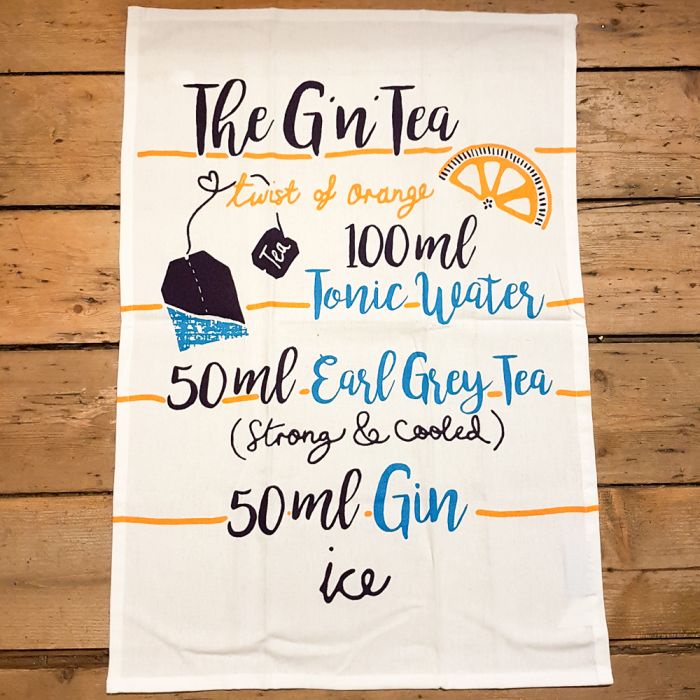 The G 'n' Tea
twist of orange
Tea
100ml
Tonic Water
50ml Earl Grey Tea
(Strong & Cooled)
50ml Gin
ice